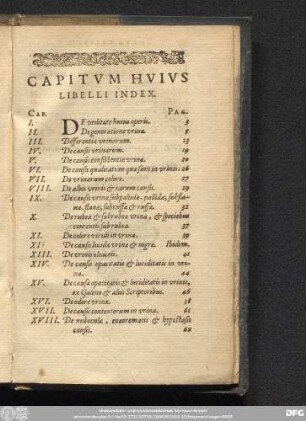 CAPITVM HVIVS
LIBELLI INDEX.
CAP. PAG.
I. DE vtilitate huius operis. 3
II. De generatione vrinæ. 5
III. Differentiæ vrinarum. 13
IV. De causis vrinarum. 19
V. De causis consistentiæ vrinæ. 20
VI. De causis qualitatum quæ sunt in vrinis. 26
VII. De vrinarum colore. 27
VIII. De albis vrinis & earum causis. 29
IX. De causis vrinæ subpallidæ, pallidæ, subfla-
uæ, flauæ, subruffæ & ruffæ. 32
X. De rubea & subrubea vrina, & speciebus
contentis sub rubea. 37
XI. De colore viridi in vrina. 39
XII. De causis liuidæ vrinæ & nigræ. Ibidem.
XIII. De vrinis oleaceis. 42
XIV. De causis opacitatis & luciditatis in vri-
na. 44
XV. De causa opacitatis & luciditatis in vrinis,
ex Galeno & alijs Scriptoribus. 46
XVI. De odore vrinæ. 58
XVII. De causis contentorum in vrina. 61
XVIII. De nubecula, enæoremate & hypostasis
causis. 62